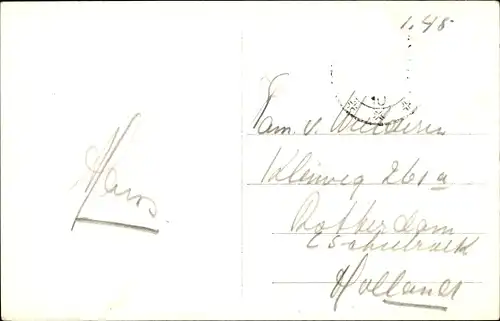 1.48
Hans
Fam. v.
Kleiweg 261a
Rotterdam
Holland